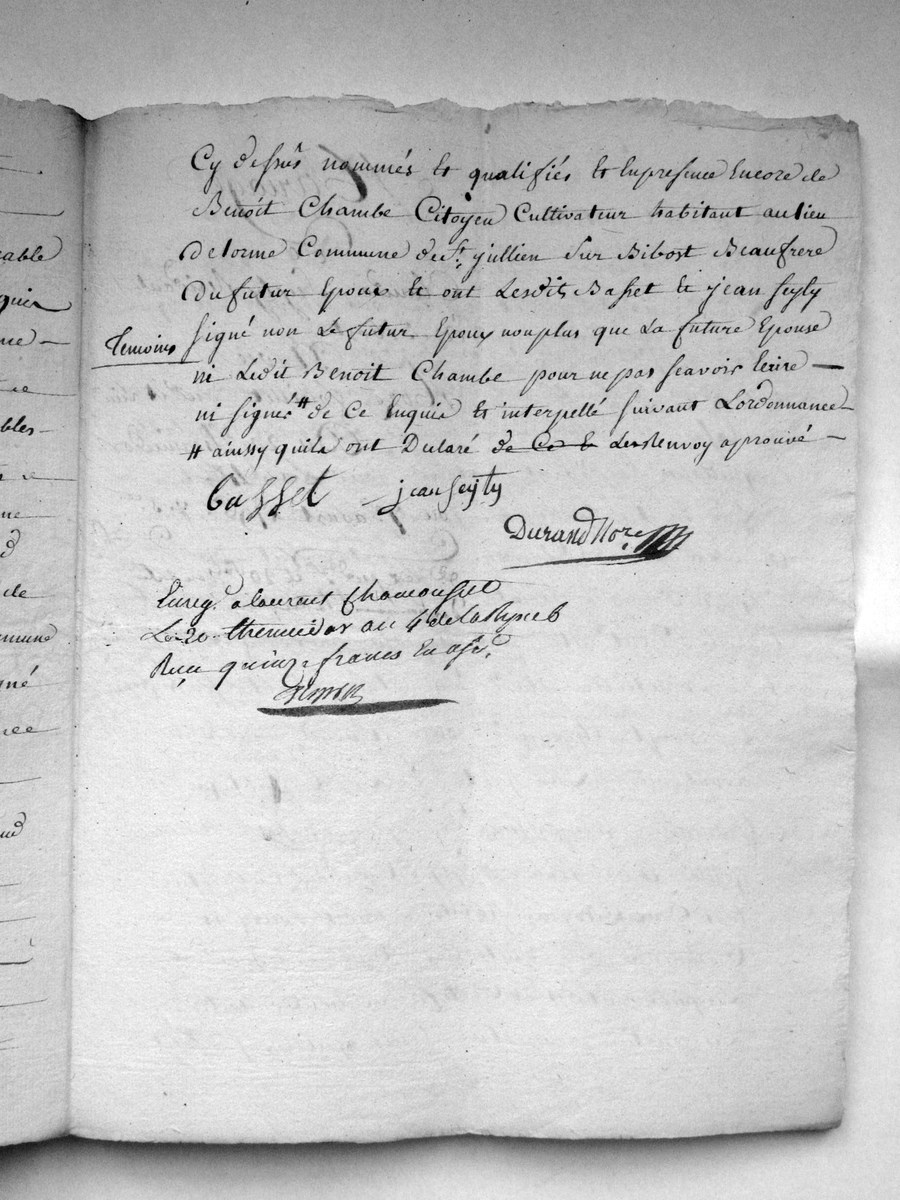 Cy dessus nommés et qualifiés et en presence Encore de
Benoit Chambe Citoyen Cultivateur habitant au lieu
de lorme Commune de St. jullien sur Bibost Beaufrere
du futur Epoux et ont Lesdits Basset et jean Seyty
Temoins
signé non Le futur Epoux non plus que La future Epouse
ni Ledit Benoit Chambe pour ne pas scavoir Ecrire —
ni signer # de Ce Enquis et interpellé suivant Lordonnance
# ainssy quils ont Declaré de Ce Le Renvoy aprouvé —
Basset jean Seyty
Durand Nore.
Enreg. a laurent Chamousset
Le 20 thermidor an 4 de la Rep
Reçu quinze francs En assi.